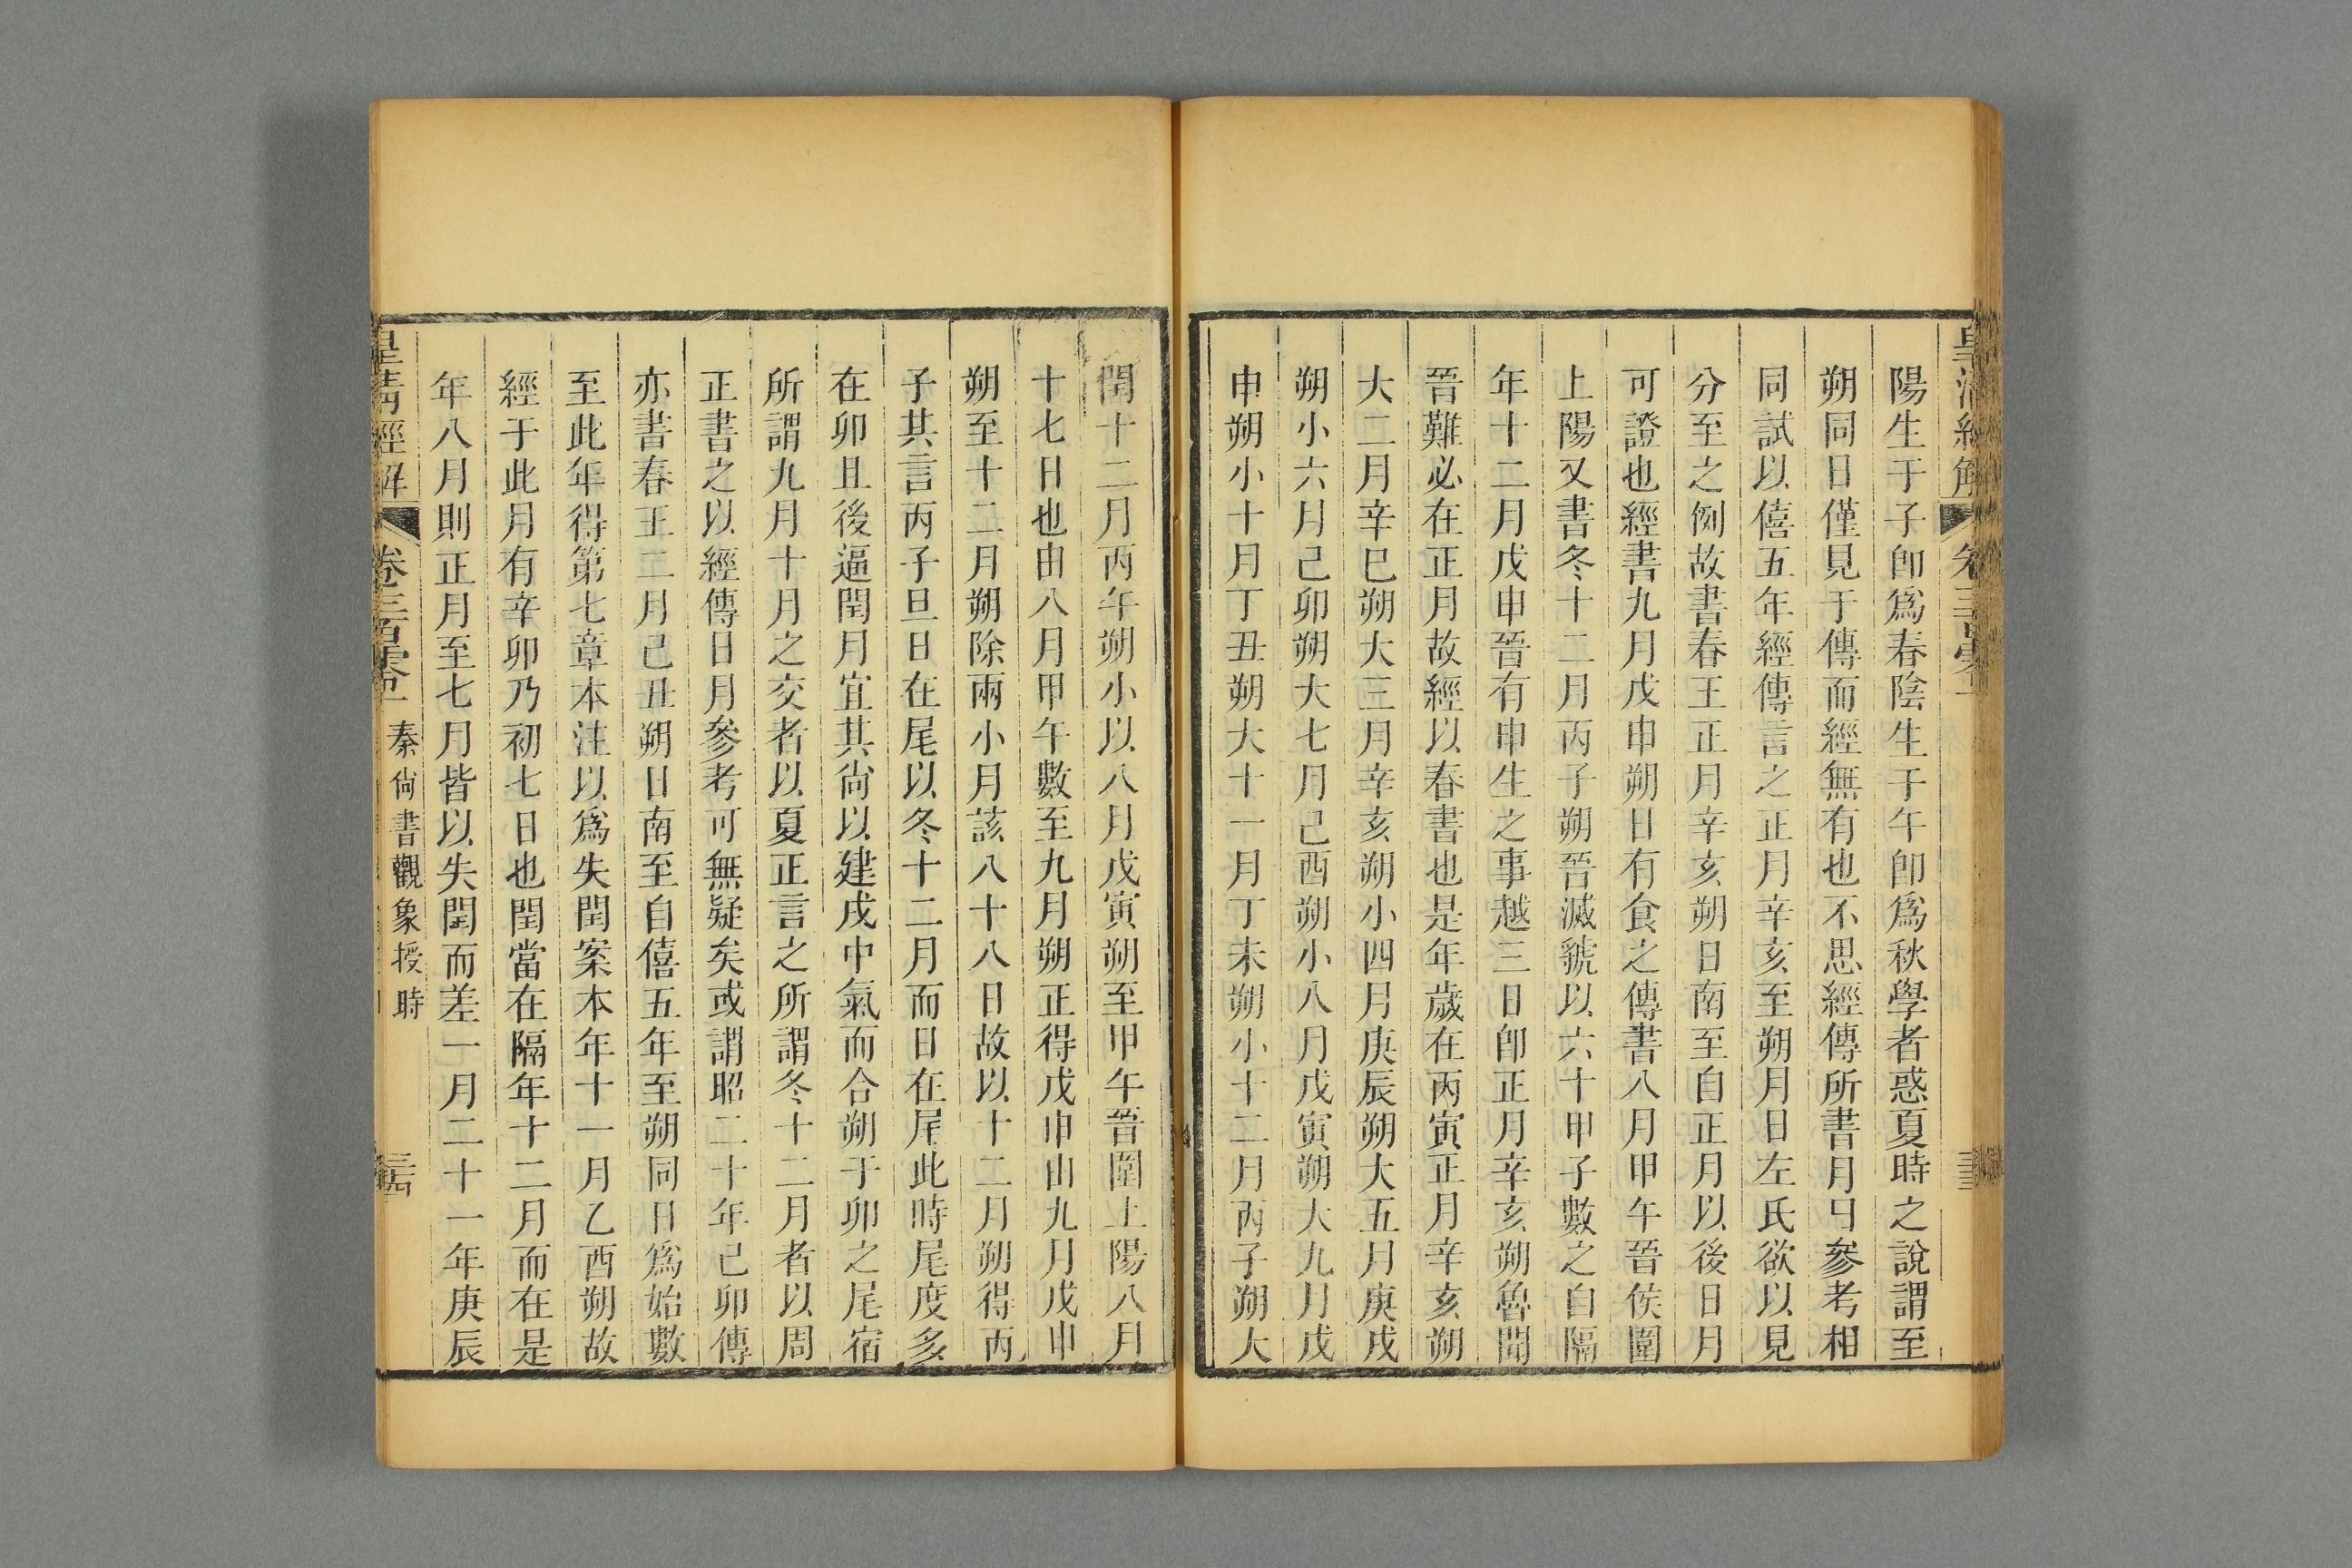 陽生于子卽爲春陰生于午卽爲秋學者惑夏時之說謂至
朔同日僅見于傳而經無有也不思經傳所書月日參考相
同試以僖五年經傳言之正月辛亥至朔月日左氏欲以見
分至之例故書春王正月辛亥朔日南至自正月以後日月
可證也經書九月戊申朔日有食之傳書八月甲午晉侯圍
上陽又書冬十二月丙子朔晉滅虢以六十甲子數之自隔
年十二月戊申晉有申生之事越三日卽正月辛亥朔魯聞
晉難必在正月故經以春書也是年歲在丙寅正月辛亥朔
大二月辛巳朔大三月辛亥朔小四月庚辰朔大五月庚戌
朔小六月己卯朔大七月己酉朔小八月戊寅朔大九月戊
申朔小十月丁丑朔大十一月丁未朔小十二月丙子朔大
閏十二月丙午朔小以八月戊寅朔至甲午晉圍上陽八月
十七日也由八月甲午數至九月朔正得戊申由九月戊申
朔至十二月朔除兩小月該八十八日故以十二月朔得丙
子其言丙子旦日在尾以冬十二月而日在尾此時尾度多
在卯且後逼閏月宜其尙以建戌中氣而合朔于卯之尾宿
所謂九月十月之交者以夏正言之所謂冬十二月者以周
正書之以經傳日月參考可無疑矣或謂昭二十年己卯傳
亦書春王二月己丑朔日南至自僖五年至朔同日爲始數
至此年得第七章本注以爲失閏案本年十一月乙酉朔故
經于此月有辛卯乃初七日也閏當在隔年十二月而在是
年八月則正月至七月皆以失閏而差一月二十一年庚辰
皇清經解 卷三百零一 秦尙書觀象授時 三古